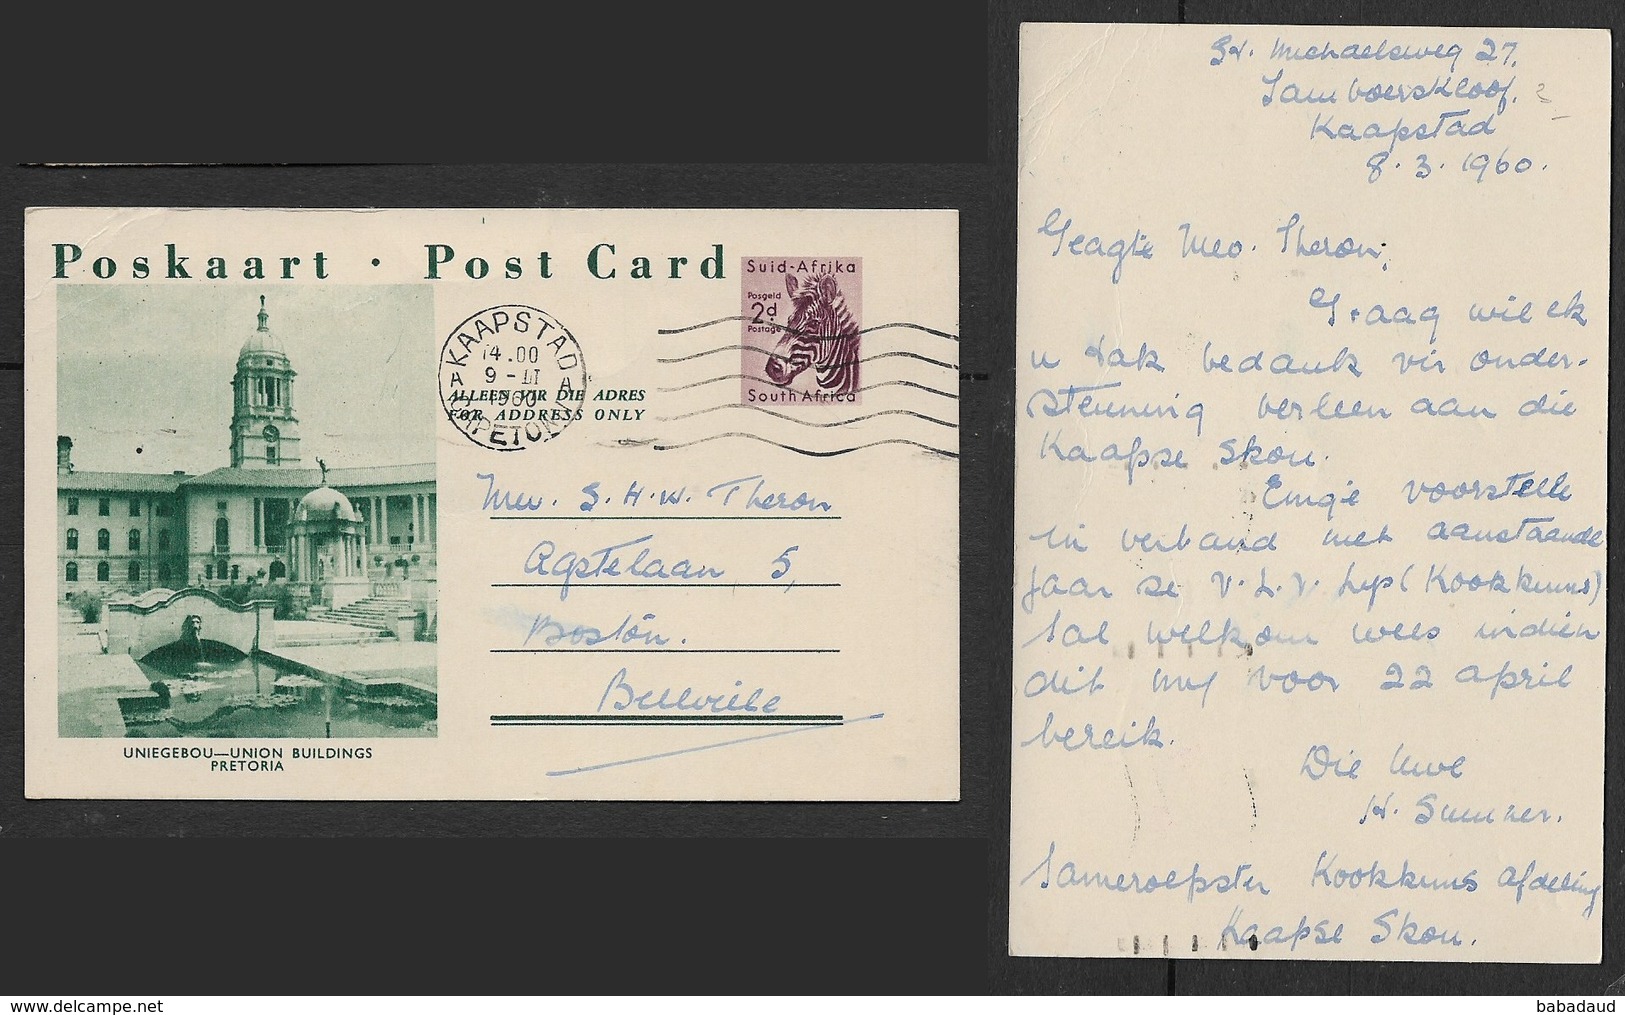 Poskaart · Post Card
Suid-Afrika
Posgeld
2d
Postage
South Africa
KAAPSTAD
14.00
9 - III
1960
CAPETOWN
A A
ALLEEN VIR DIE ADRES
FOR ADDRESS ONLY
Mev. S. H. W. Theron
5,
Boston.
Bellville
UNIEGEBOU—UNION BUILDINGS
PRETORIA
St. Michaelsweg 27,
Tamboerskloof.
Kaapstad
8. 3. 1960.
Geagte Mev. Theron,
Graag wil ek
u dank vir onder-
steuning verleen aan die
Kaapse Skou.
Enige voorstelle
in verband met aanstaande
jaar se V.L.V. Lys (Kookkuns)
sal welkom wees indien
dit my voor 22 april
bereik.
Die Uwe
H. Sumner.
Sameroepster Kookkuns afdeling
Kaapse Skou.
babadaud